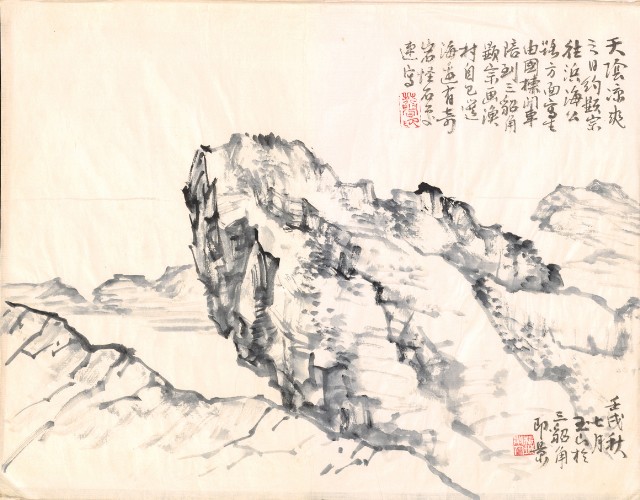 天陰涼爽
之日約顯宗
往浜海公
路方面寫生
由國樑開車
陪到三貂角
顯宗画漁
村自己選
海邊有奇
岩怪石
速寫
壬戌秋
七月
玉山於
三貂角
即景